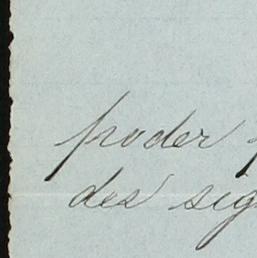 poder
des sig